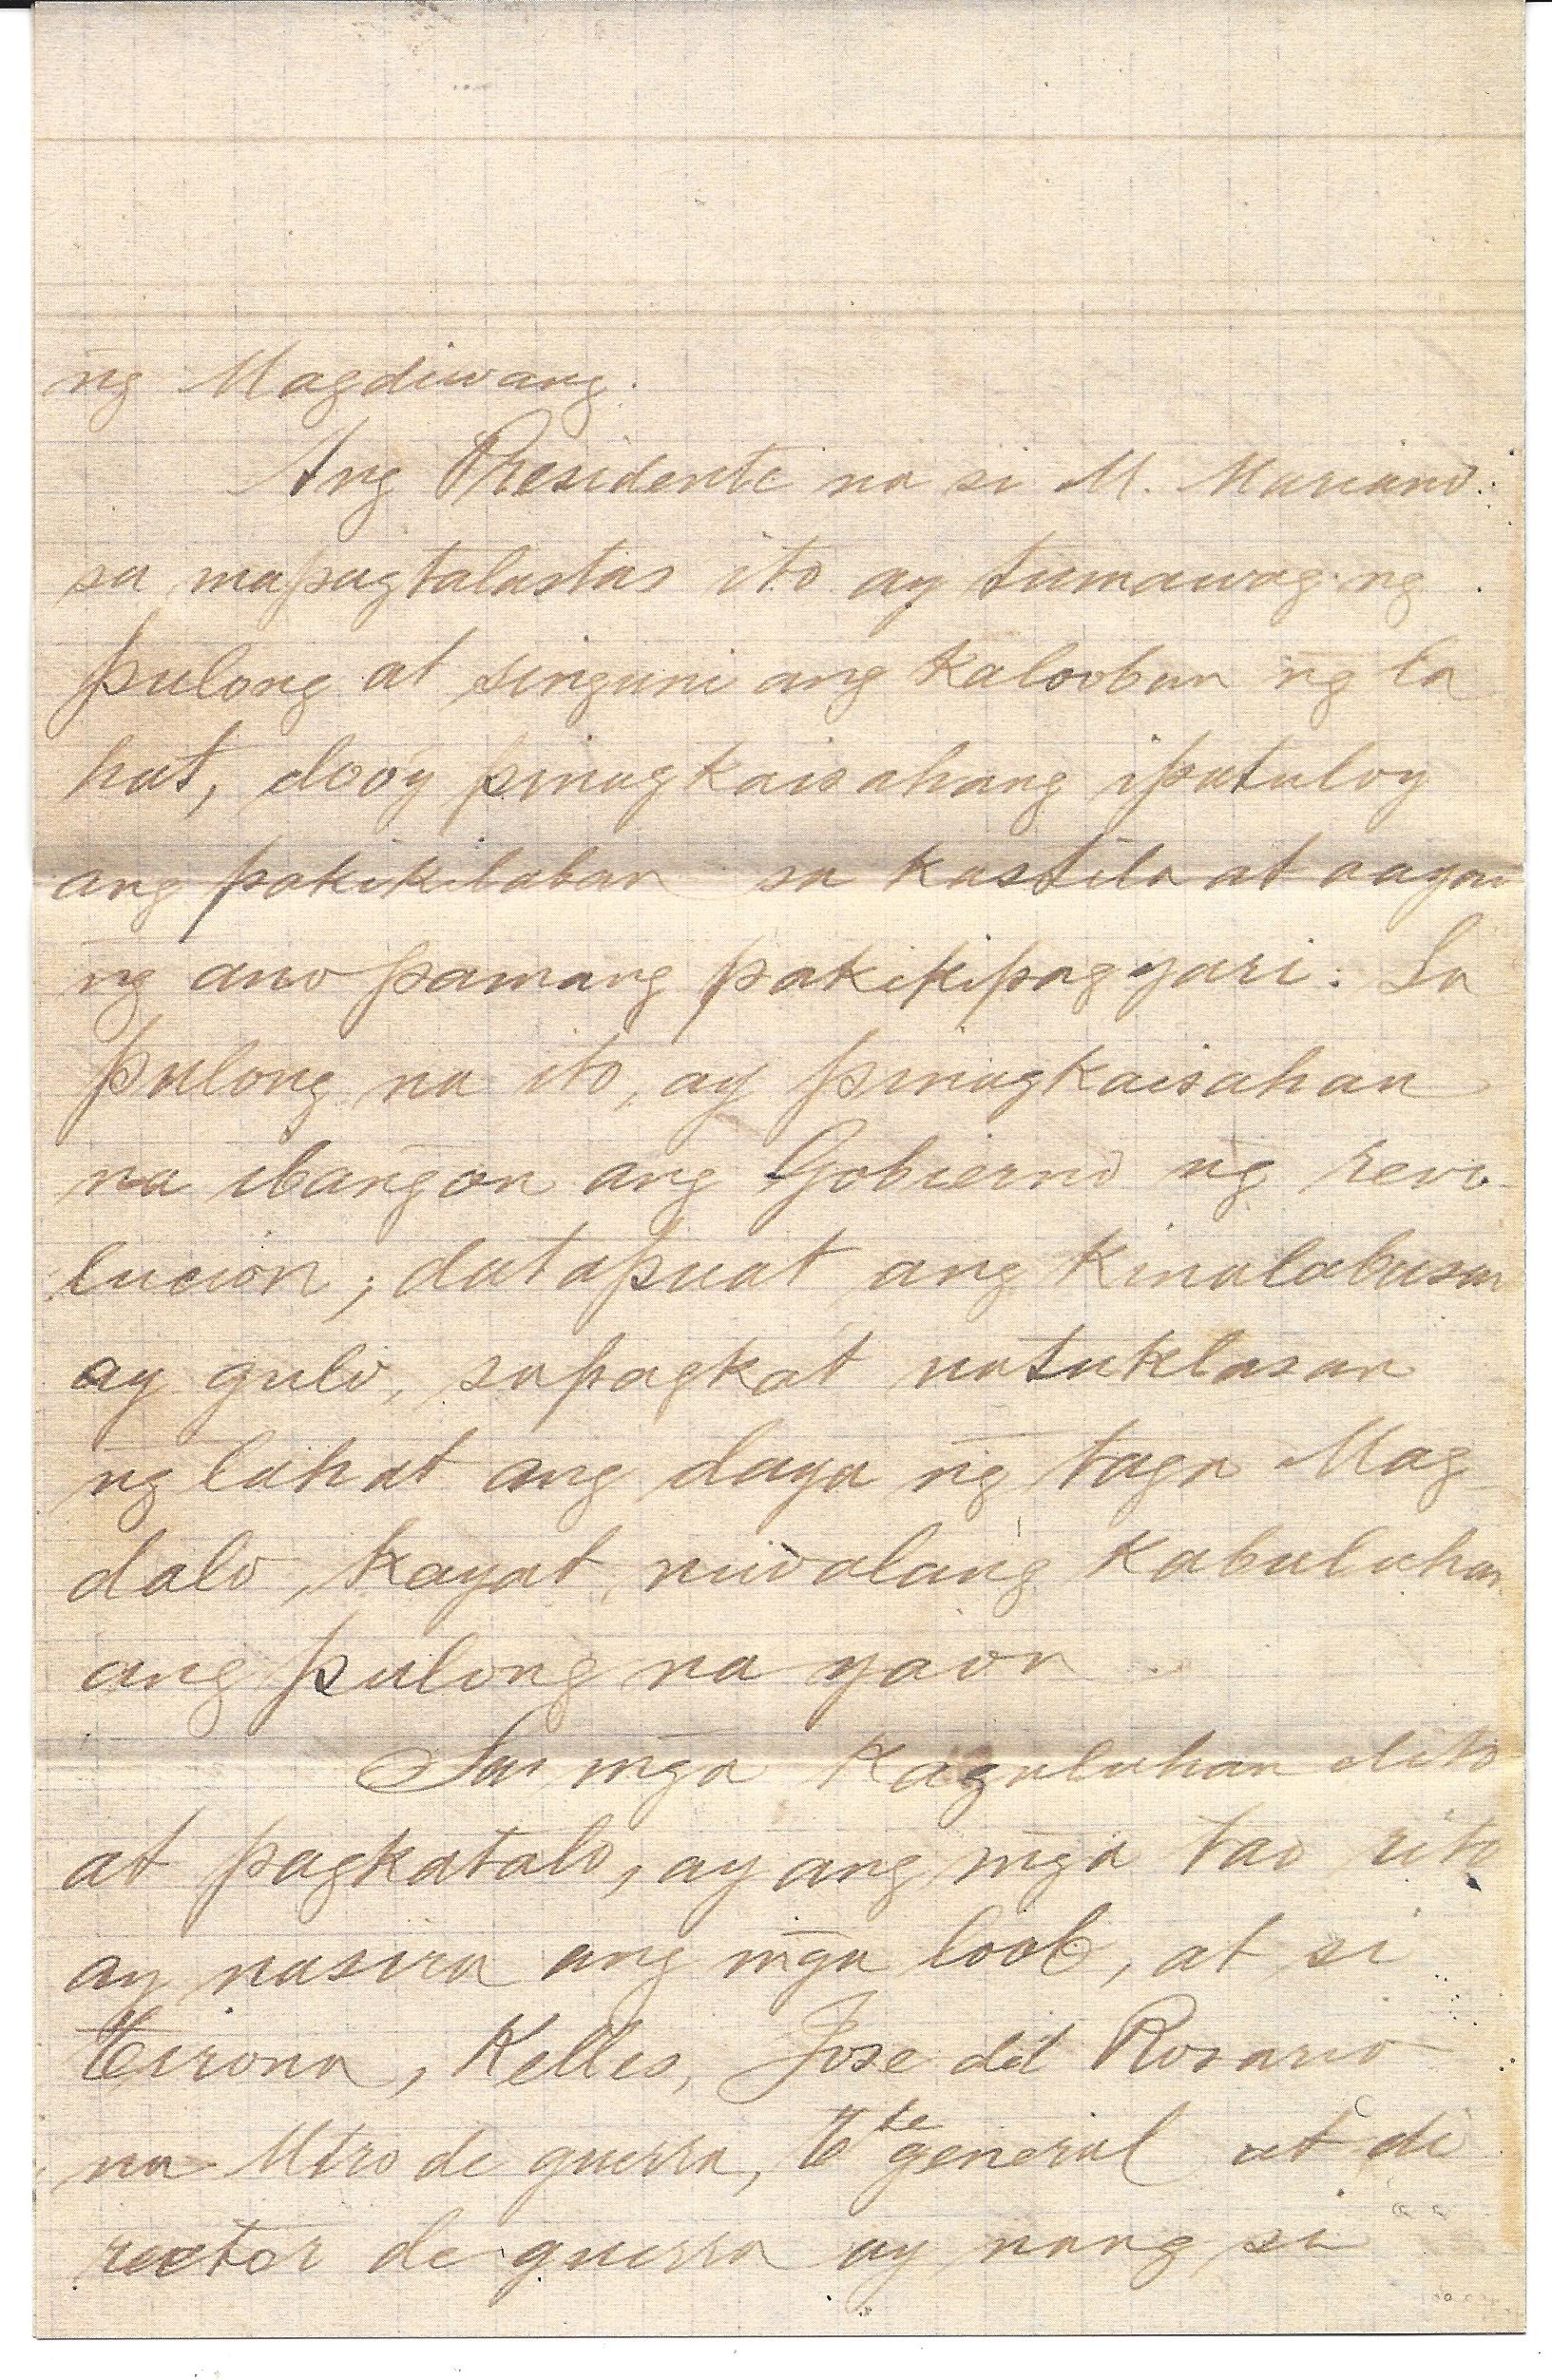 ng̃ Magdiwang.
Ang Presidente na si M. Mariano
sa mapagtalastas ito ay tumawag ng
pulong at singuni ang kalooban ng̃ la
hat, dooy pinagkaisahang ipatuloy
ang pakikilaban sa kastila at aayau
ng̃ ano pamang pakikipagyari. Sa
pulong na ito, ay pinagkaisahan
na ibang̃on ang Gobierno ng̃ revo-
lucion; datapuat ang kinalabasan
ay gulo, sapagkat natuklasan
ng̃ lahat ang daya ng̃ taga Mag-
dalo, kayat, niwalang kabuluhan
ang pulong na yaon.
Sa mg̃a kaguluhan dito
at pagkatalo, ay ang mg̃a tao rito
ay nasira ang mg̃a loob, at si
Tirona, Kelles, Jose del Rosario
na Mtro de guerra, Tte general at di
rector de guerra ay nang si